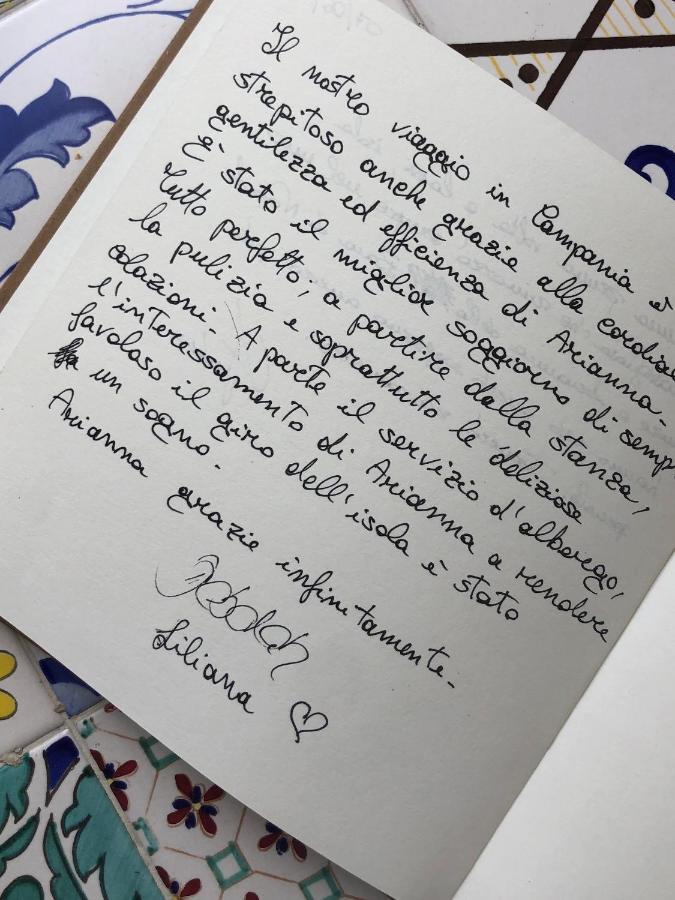 Il nostro viaggio in Campania è
strepitoso anche grazie alla cordial
gentilezza ed efficienza di Arianna.
È stato il miglior soggiorno di semp
Tutto perfetto, a partire dalla stanza,
la pulizia e soprattutto le deliziose
colazioni. A parte il servizio d'albergo,
l'interessamento di Arianna a rendere
favoloso il giro dell'isola è stato
un sogno.
Arianna grazie infinitamente.
Liliana ♡